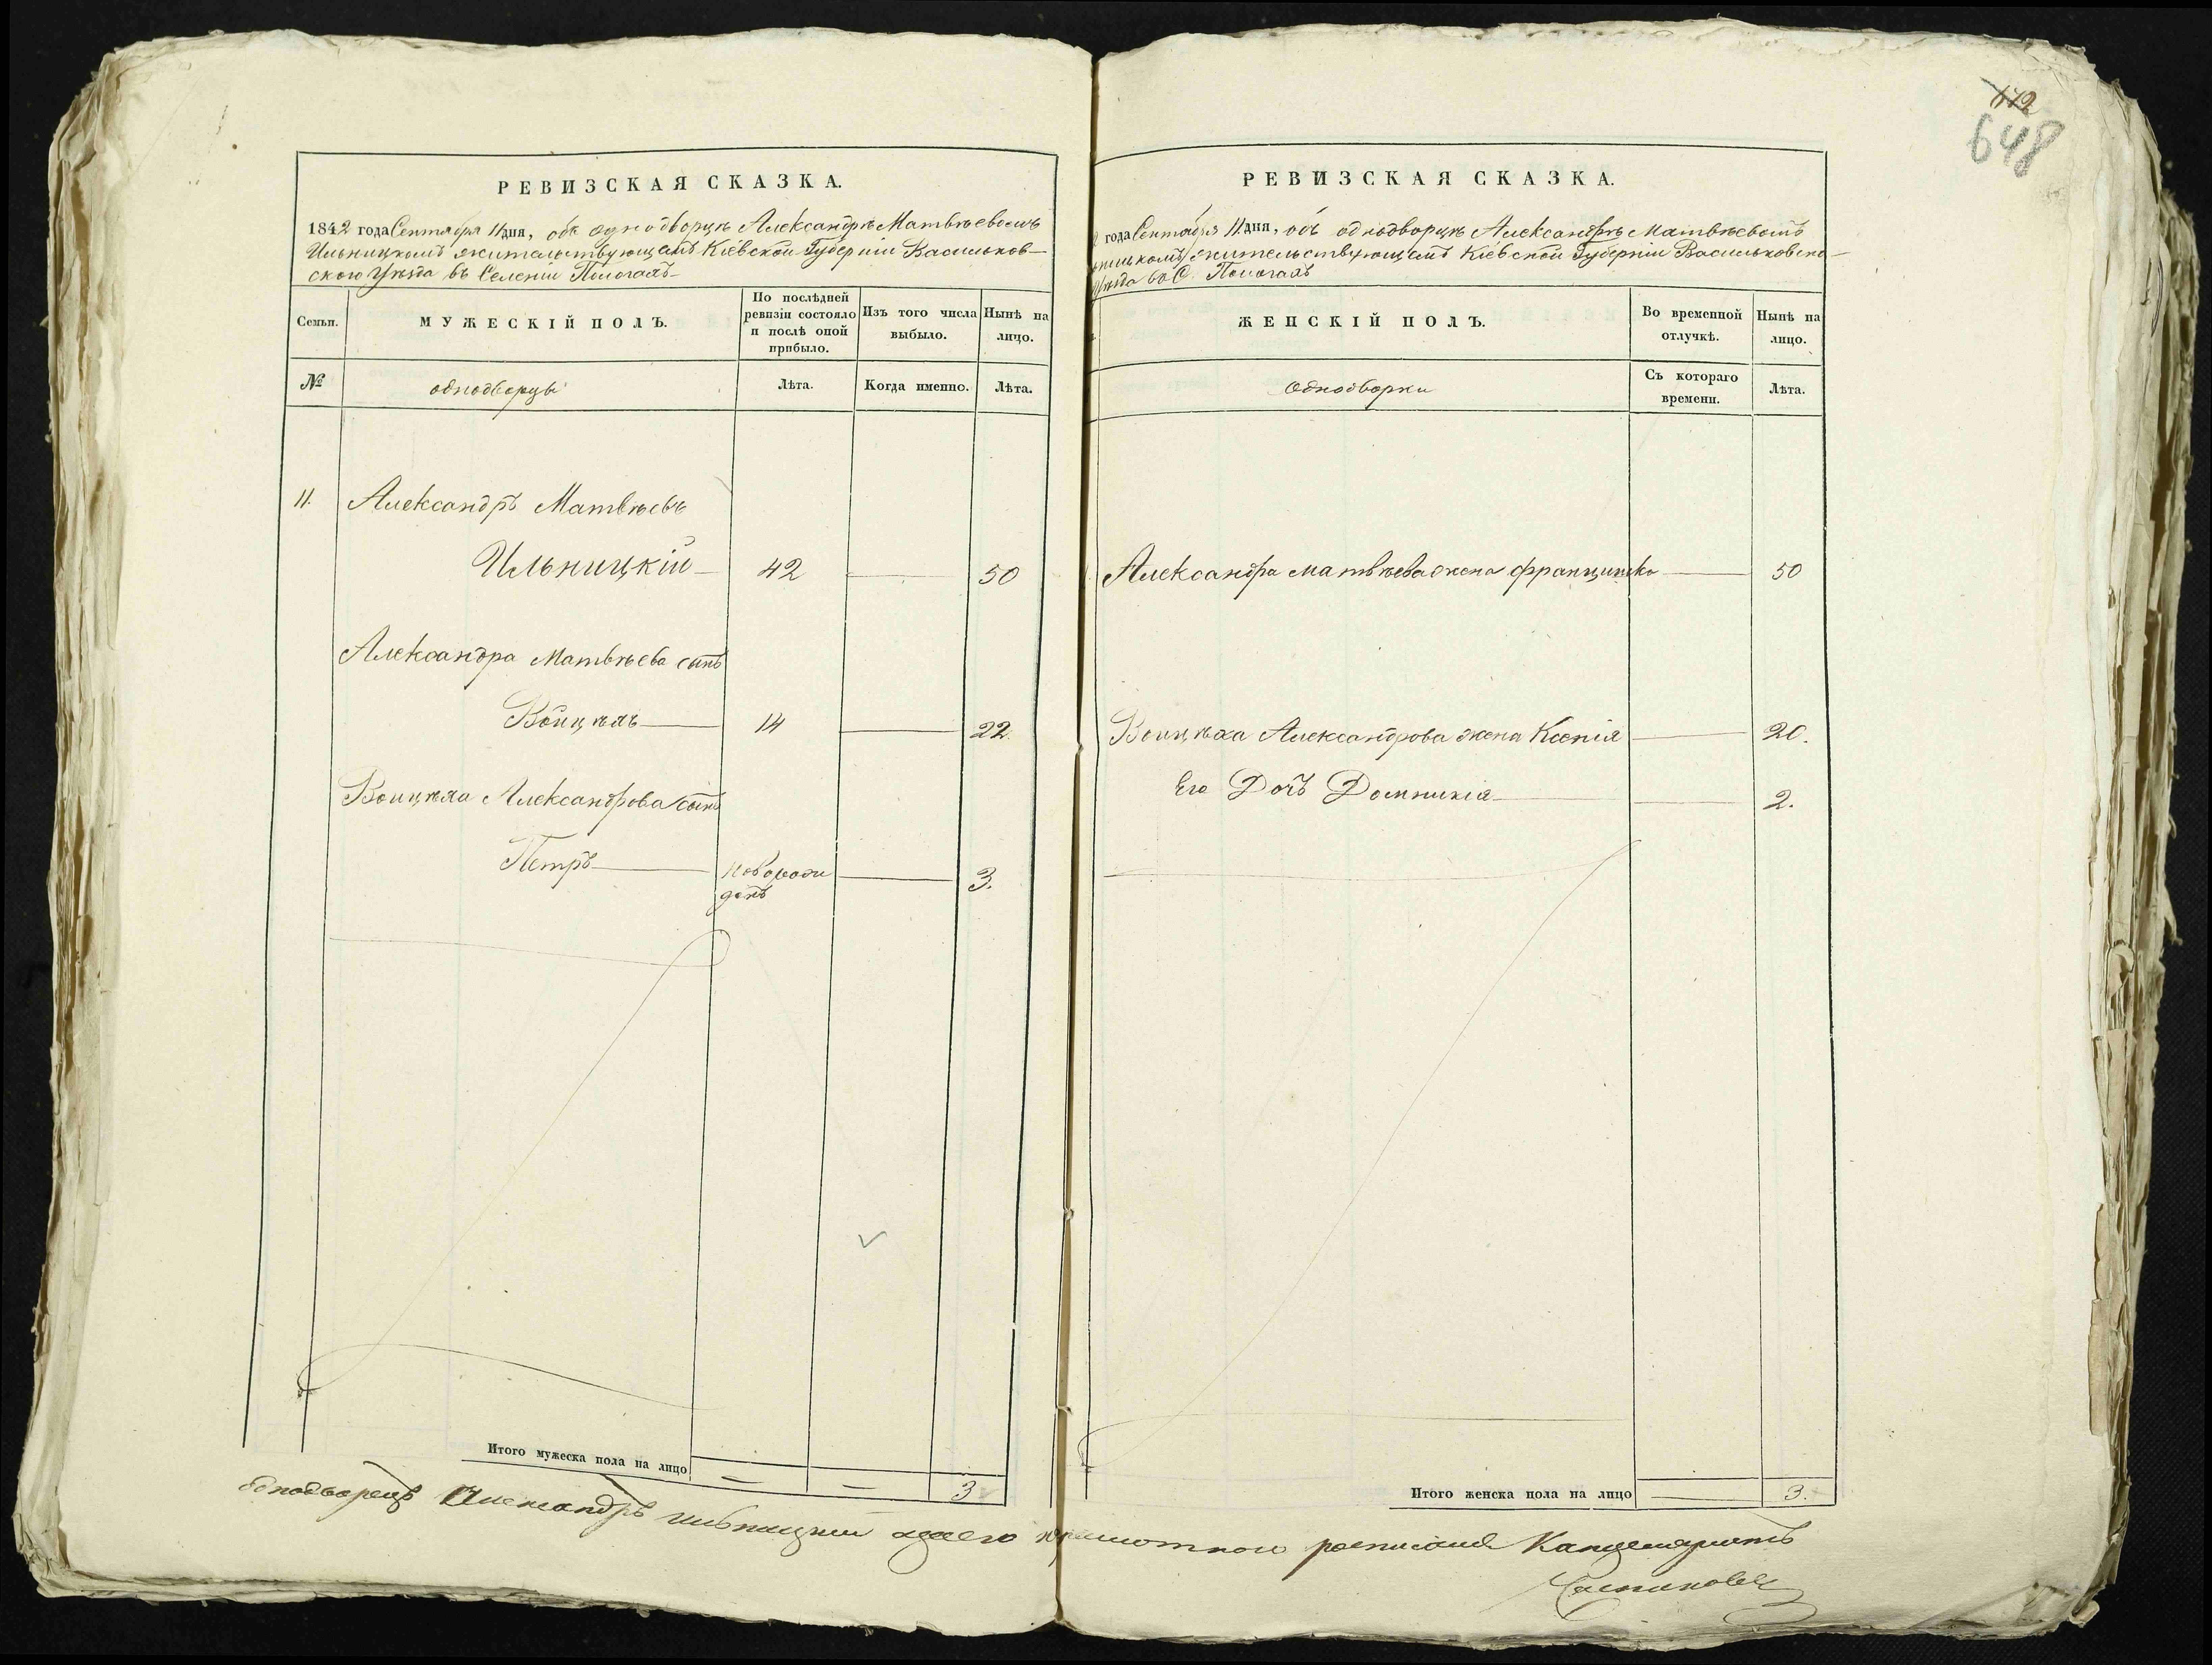 672
648
РЕВИЗСКАЯ СКАЗКА.
1842 года Сентября 11 дня, объ однодворцѣ Александрѣ Матвѣевомъ
Ильницкомъ жительствующемъ Кіевской Губерніи Васильков-
ского Уѣзда въ Селеніи Пологахъ
Семьи.
МУЖЕСКІЙ ПОЛЪ.
По послѣдней
ревизіи состояло
и послѣ оной
прибыло.
Изъ того числа
выбыло.
Нынѣ на
лицо.
№
однодворцы
Лѣта.
Когда именно.
Лѣта.
11. Александръ Матвѣевъ
Ильницкій 42 50
Александра Матвѣева сынъ
Войцѣхъ 14 22.
Воицѣха Александрова сынъ
Петръ новорож
денъ 3.
Итого мужеска пола на лицо 3
РЕВИЗСКАЯ СКАЗКА.
года Сентября 11 дня, объ однодворцѣ Александрѣ Матвѣевомъ
ницкомъ жительствующемъ Кіевской Губерніи Васильковско-
Уѣзда въ С. Пологахъ
ЖЕНСКІЙ ПОЛЪ.
Во временной
отлучкѣ.
Нынѣ на
лицо.
Однодворки
Съ котораго
времени.
Лѣта.
Александра Матвѣева жена Францишка 50
Воицѣха Александрова жена Ксенія 20.
Его Дочъ Домникія 2.
Итого женска пола на лицо 3.
однодворецъ Александръ Ильницкій
росписался Канцеляристъ